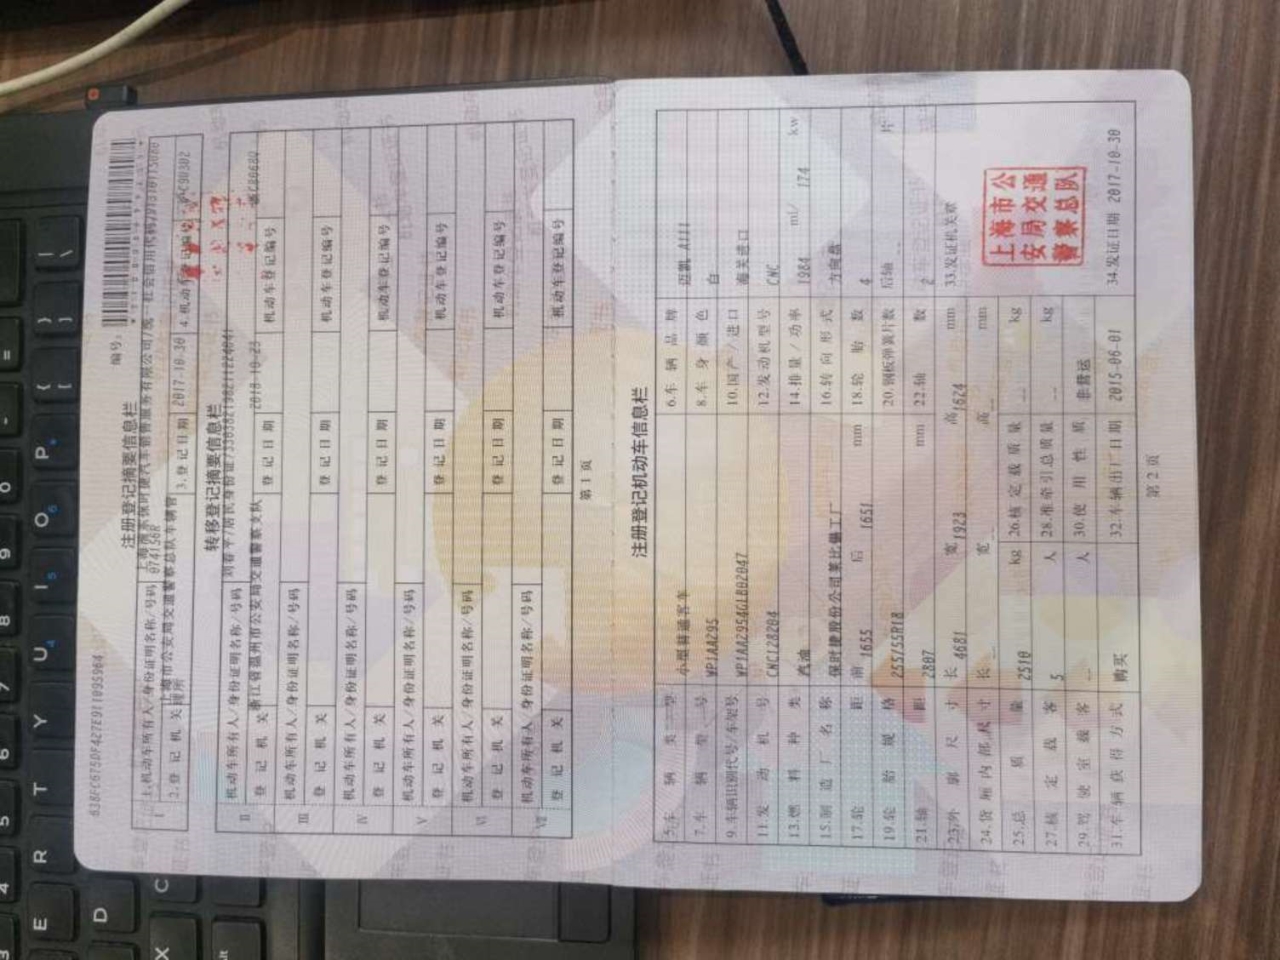 638FC675DF427E911095964
编号:
注册登记摘要信息栏
I 1.机动车所有人/身份证明名称/号码
2.登记机关 上海市公安局交通警察总队车辆管理所 3.登记日期 2017-10-30 4.机动车登记编号
转移登记摘要信息栏
II 机动车所有人/身份证明名称/号码
登记机关 浙江省温州市公安局交通警察支队 登记日期 2018-10-23 机动车登记编号
III 机动车所有人/身份证明名称/号码
登记机关 登记日期 机动车登记编号
IV 机动车所有人/身份证明名称/号码
登记机关 登记日期 机动车登记编号
V 机动车所有人/身份证明名称/号码
登记机关 登记日期 机动车登记编号
VI 机动车所有人/身份证明名称/号码
登记机关 登记日期 机动车登记编号
VII 机动车所有人/身份证明名称/号码
登记机关 登记日期 机动车登记编号
第 1 页
注册登记机动车信息栏
5.车辆类型 小型普通客车 6.车辆品牌 迈凯
7.车辆型号 WP1AA295 8.车身颜色 白
9.车辆识别代号/车架号 WP1AA2954GLB02047 10.国产/进口 海关进口
11.发动机号 CNC128204 12.发动机型号 CNC
13.燃料种类 汽油 14.排量/功率 1984 ml/ 174 kw
15.制造厂名称 保时捷股份公司莱比锡工厂 16.转向形式 方向盘
17.轮距 前 1655 后 1651 mm 18.轮胎数 4
19.轮胎规格 255/55R18 20.钢板弹簧片数 后轴 片
21.轴距 2807 mm 22.轴数 2
23.外廓尺寸 长 4681 宽 1923 高 1624 mm 33.发证机关章
24.货厢内部尺寸 长 -- 宽 -- 高 -- mm
25.总质量 2510 kg 26.核定载质量 -- kg
27.核定载客 5 人 28.准牵引总质量 -- kg
29.驾驶室载客 -- 人 30.使用性质 非营运
31.车辆获得方式 购买 32.车辆出厂日期 2015-06-01 34.发证日期 2017-10-30
上海市公
安局交通
警察总队
第 2 页